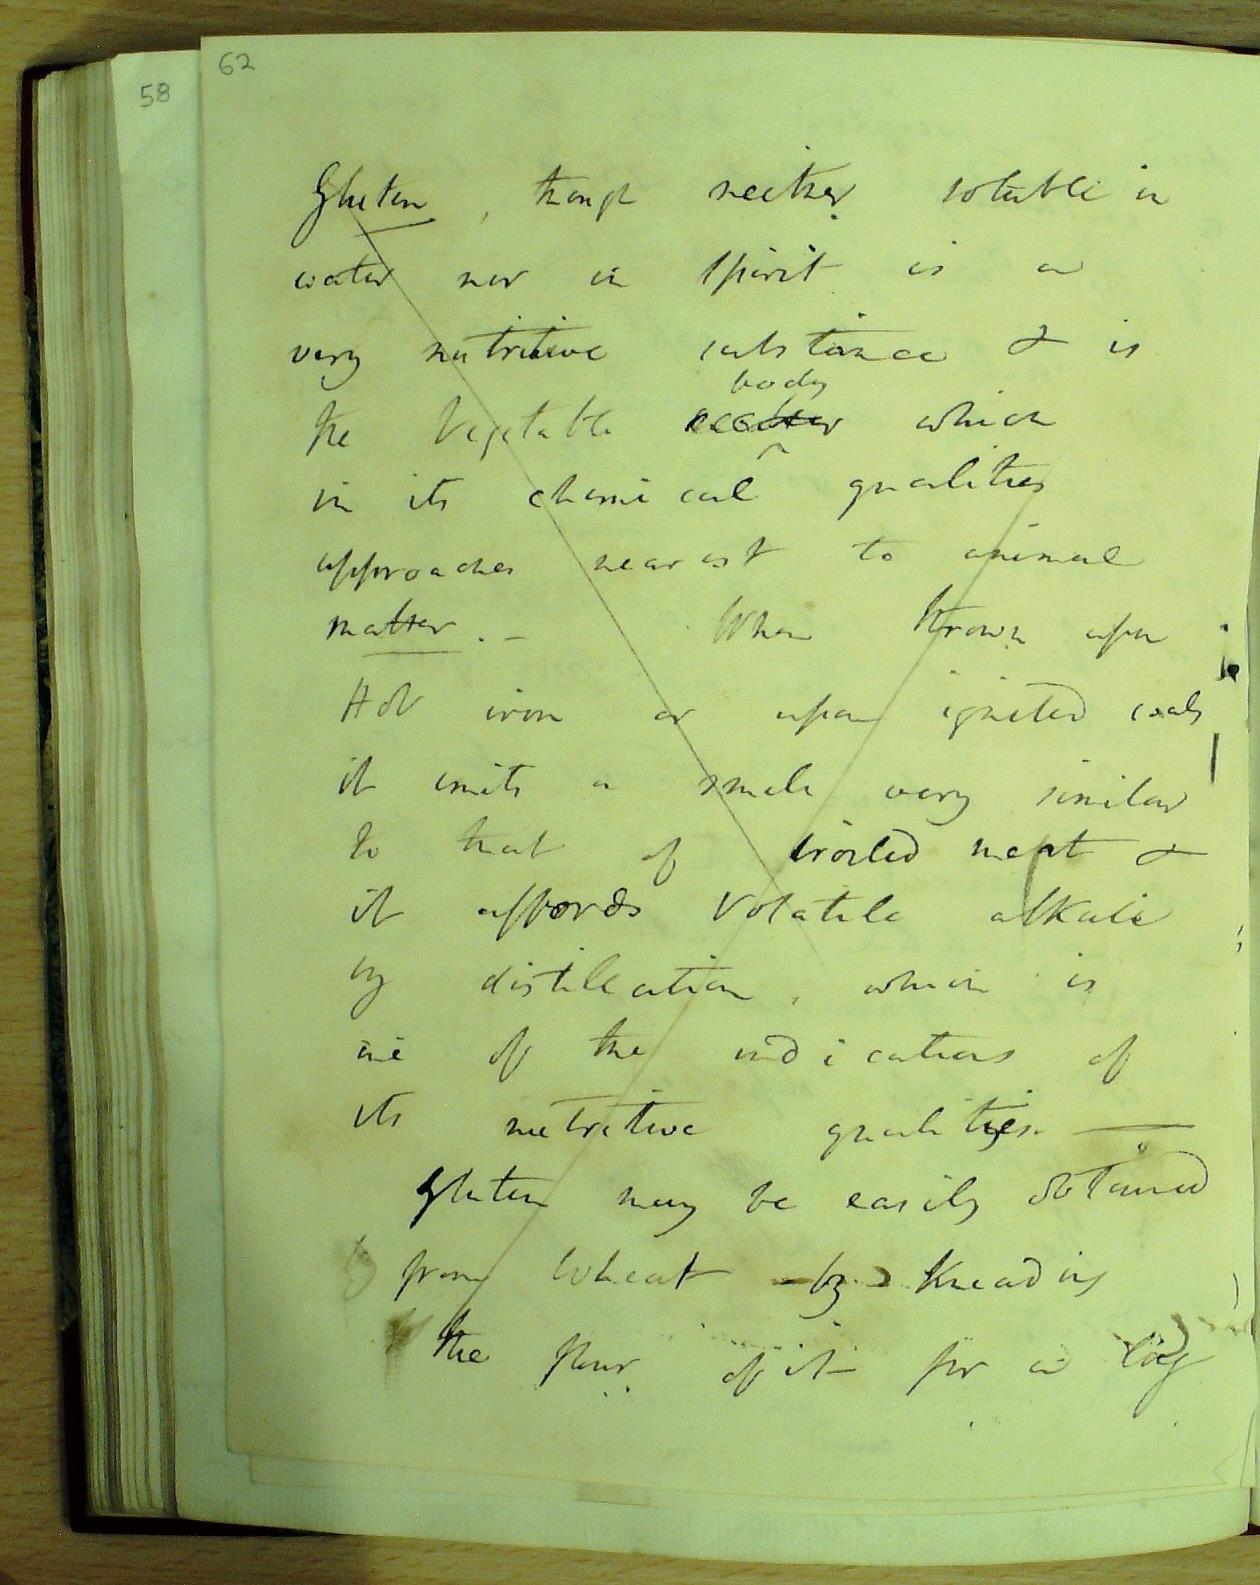 62
58
Gluten, though neither soluble in
water nor in spirit is a
very nutritive substance & is
body
the Vegetable which
in its chemical qualities
approaches nearest to animal
matter. - When thrown upon
Hot iron or upon ignited coals
it emits a smell very similar
to that of broiled meat &
it affords Volatile alkali
by distillation, which is
one of the indications of
its nutritive qualities. —
Gluten may be easily obtained
from Wheat by Kneading
the flour of it for a long